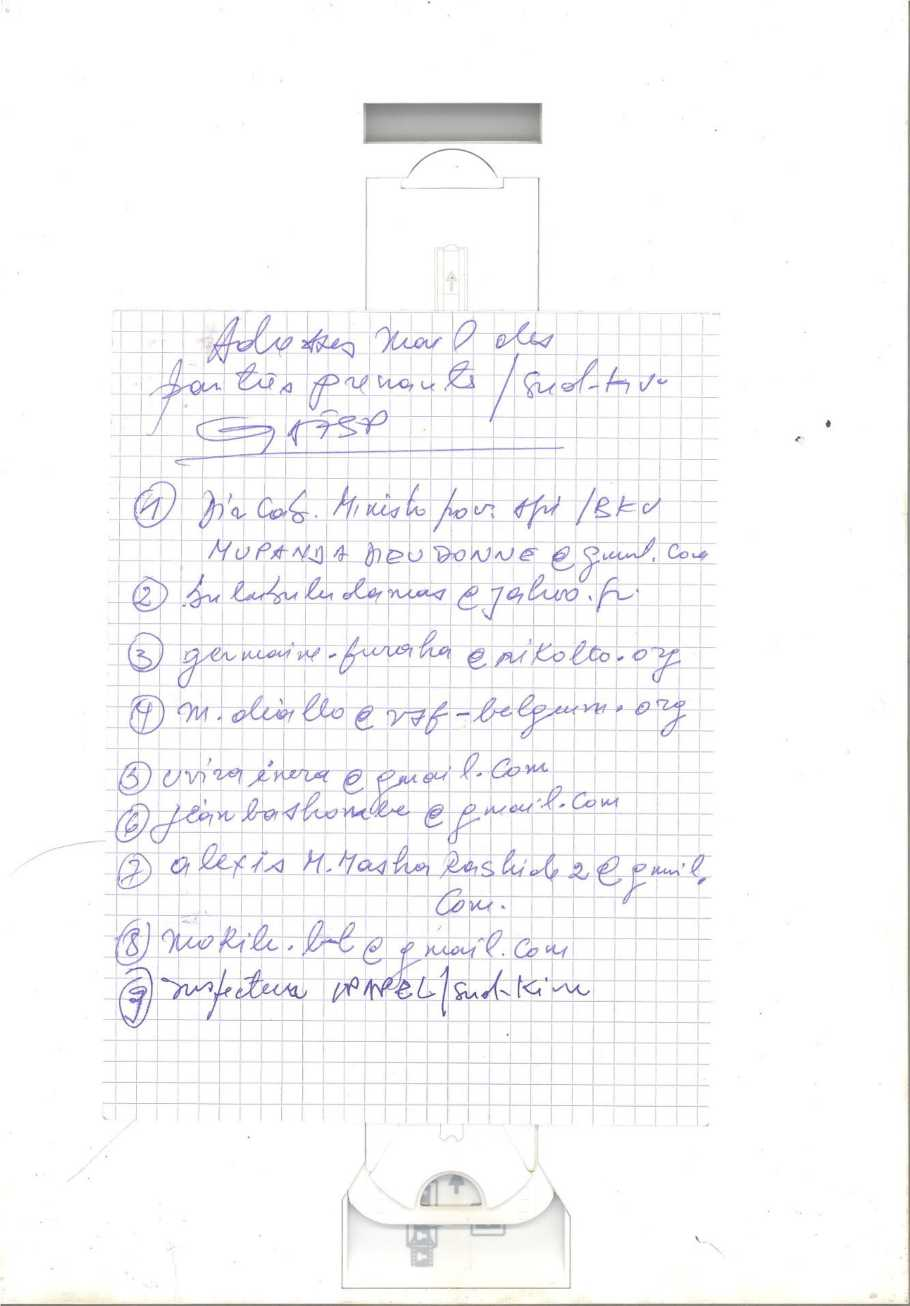 Adresses mail des
parties prenants / Sud-Kivu
① Dir Cab. Ministo prov. /BKV
MUPANDA DIEUDONNE @ gmail. Com
② @ yahoo. fr.
③ germaine.furaha @ rikolto.org
④ m.diallo @ vsf-belgium.org
⑤ uvira inera @ gmail.Com
⑥ jean bashombe @ gmail.Com
⑦ alexis M.Masha Rashidi 2 @ gmil.
Com.
⑧ @ gmail.com
⑨ Inspecteur /Sud-Kivu